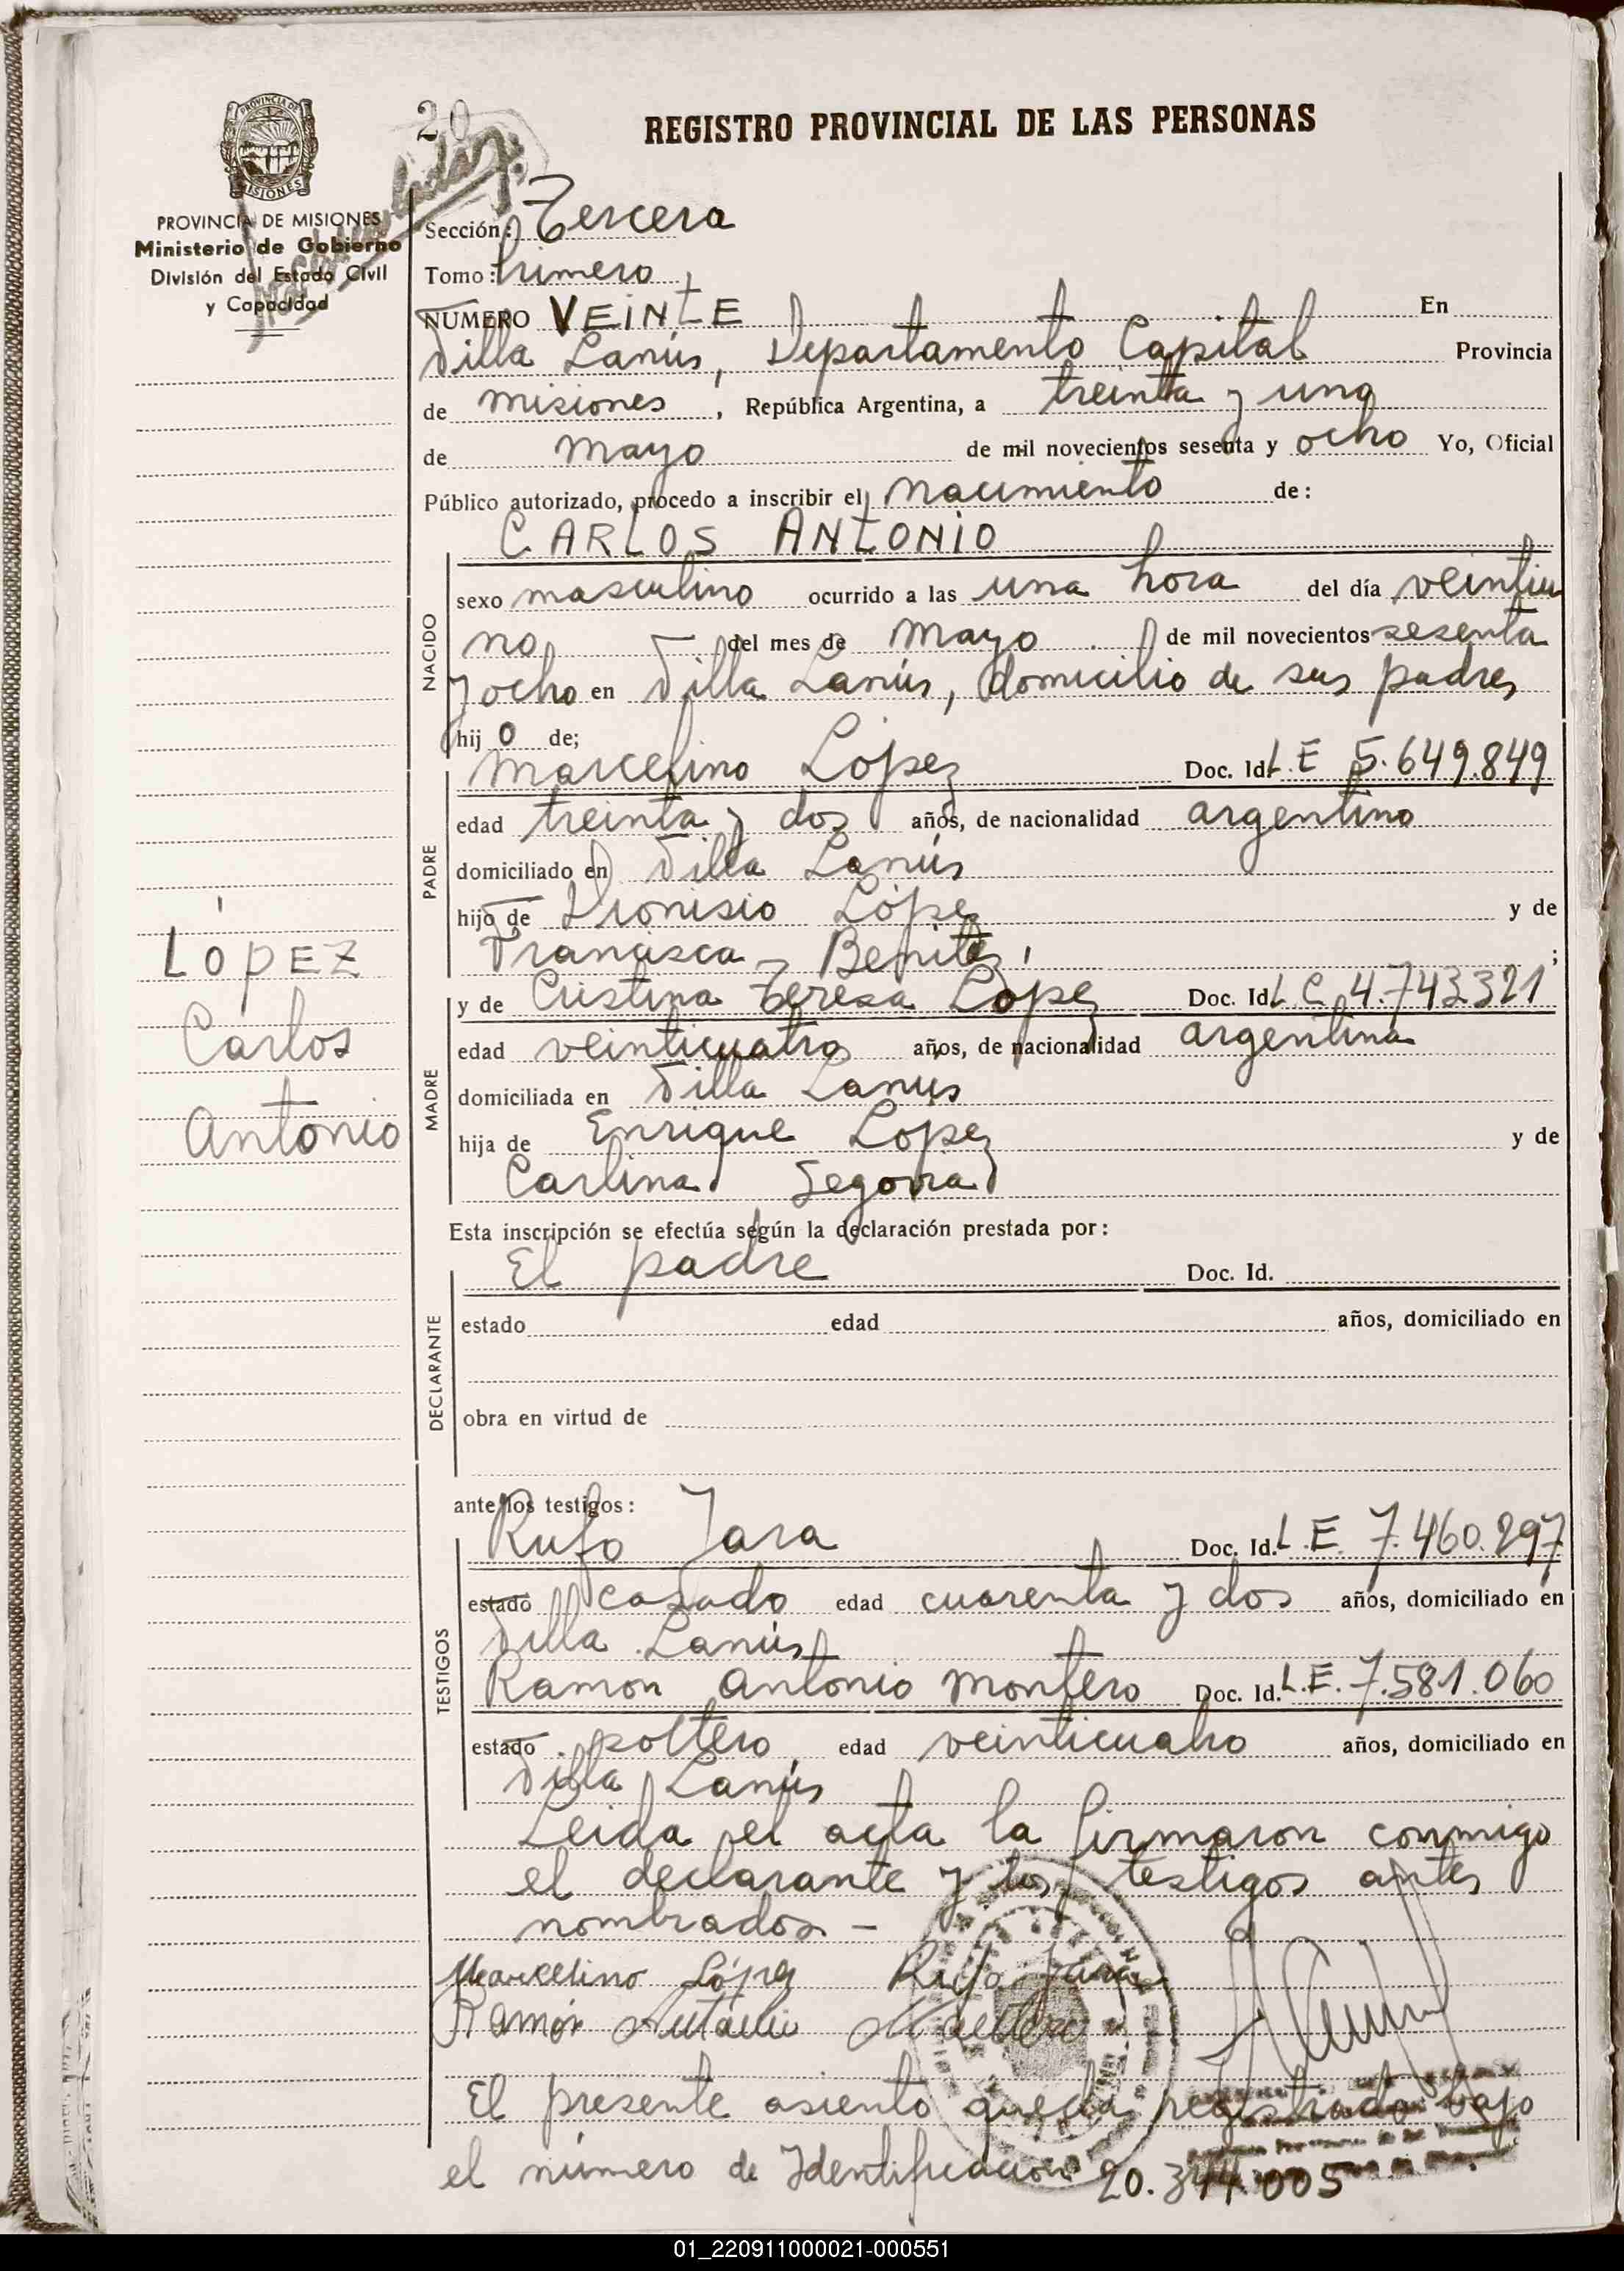 PROVINCIA DE MISIONES
PROVINCIA DE MISIONES
Ministerio de Gobierno
División del Estado Civil
y Capacidad
20
REGISTRO PROVINCIAL DE LAS PERSONAS
Sección: Tercera
Tomo: Primero
NUMERO VEiNTE En
Villa Lanús, Departamento Capital Provincia
de Misiones, República Argentina, a treinta y uno
de Mayo de mil novecientos sesenta y ocho Yo, Oficial
Público autorizado, procedo a inscribir el Nacimiento de:
CARLOS ANTONIO
NACIDO
sexo masculino ocurrido a las una hora del día veintiu
no del mes de Mayo de mil novecientos sesenta
y ocho en Villa Lanús, domicilio de sus padres
hijo de;
PADRE
Marcelino López Doc. Id. L.E 5.649.849
edad treinta y dos años, de nacionalidad argentino
domiciliado en Villa Lanús
hijo de Dionisio López y de
Francisca Benitez;
LOPEZ
Carlos
Antonio
MADRE
y de Cristina Teresa Lopez Doc. Id. L C 4.743321
edad veinticuatro años, de nacionalidad argentina
domiciliada en Villa Lanus
hija de Enrique Lopez y de
Carlina Segovia
Esta inscripción se efectúa según la declaración prestada por:
DECLARANTE
El padre Doc. Id.
estado edad años, domiciliado en
obra en virtud de
ante los testigos:
TESTIGOS
Rufo Jara Doc. Id. L.E. 7.460.297
estado casado edad cuarenta y dos años, domiciliado en
Villa Lanús
Ramon Antonio Montero Doc. Id. L.E. 7.581.060
estado soltero edad veinticuatro años, domiciliado en
Villa Lanús
Leida el acta la firmaron conmigo
el declarante y los testigos antes
nombrados -
Marcelino López Rufo Jara
Ramón Antonio Montero
El presente asiento queda registrado bajo
el número de Identificacion 20.344.005
01_220911000021-000551